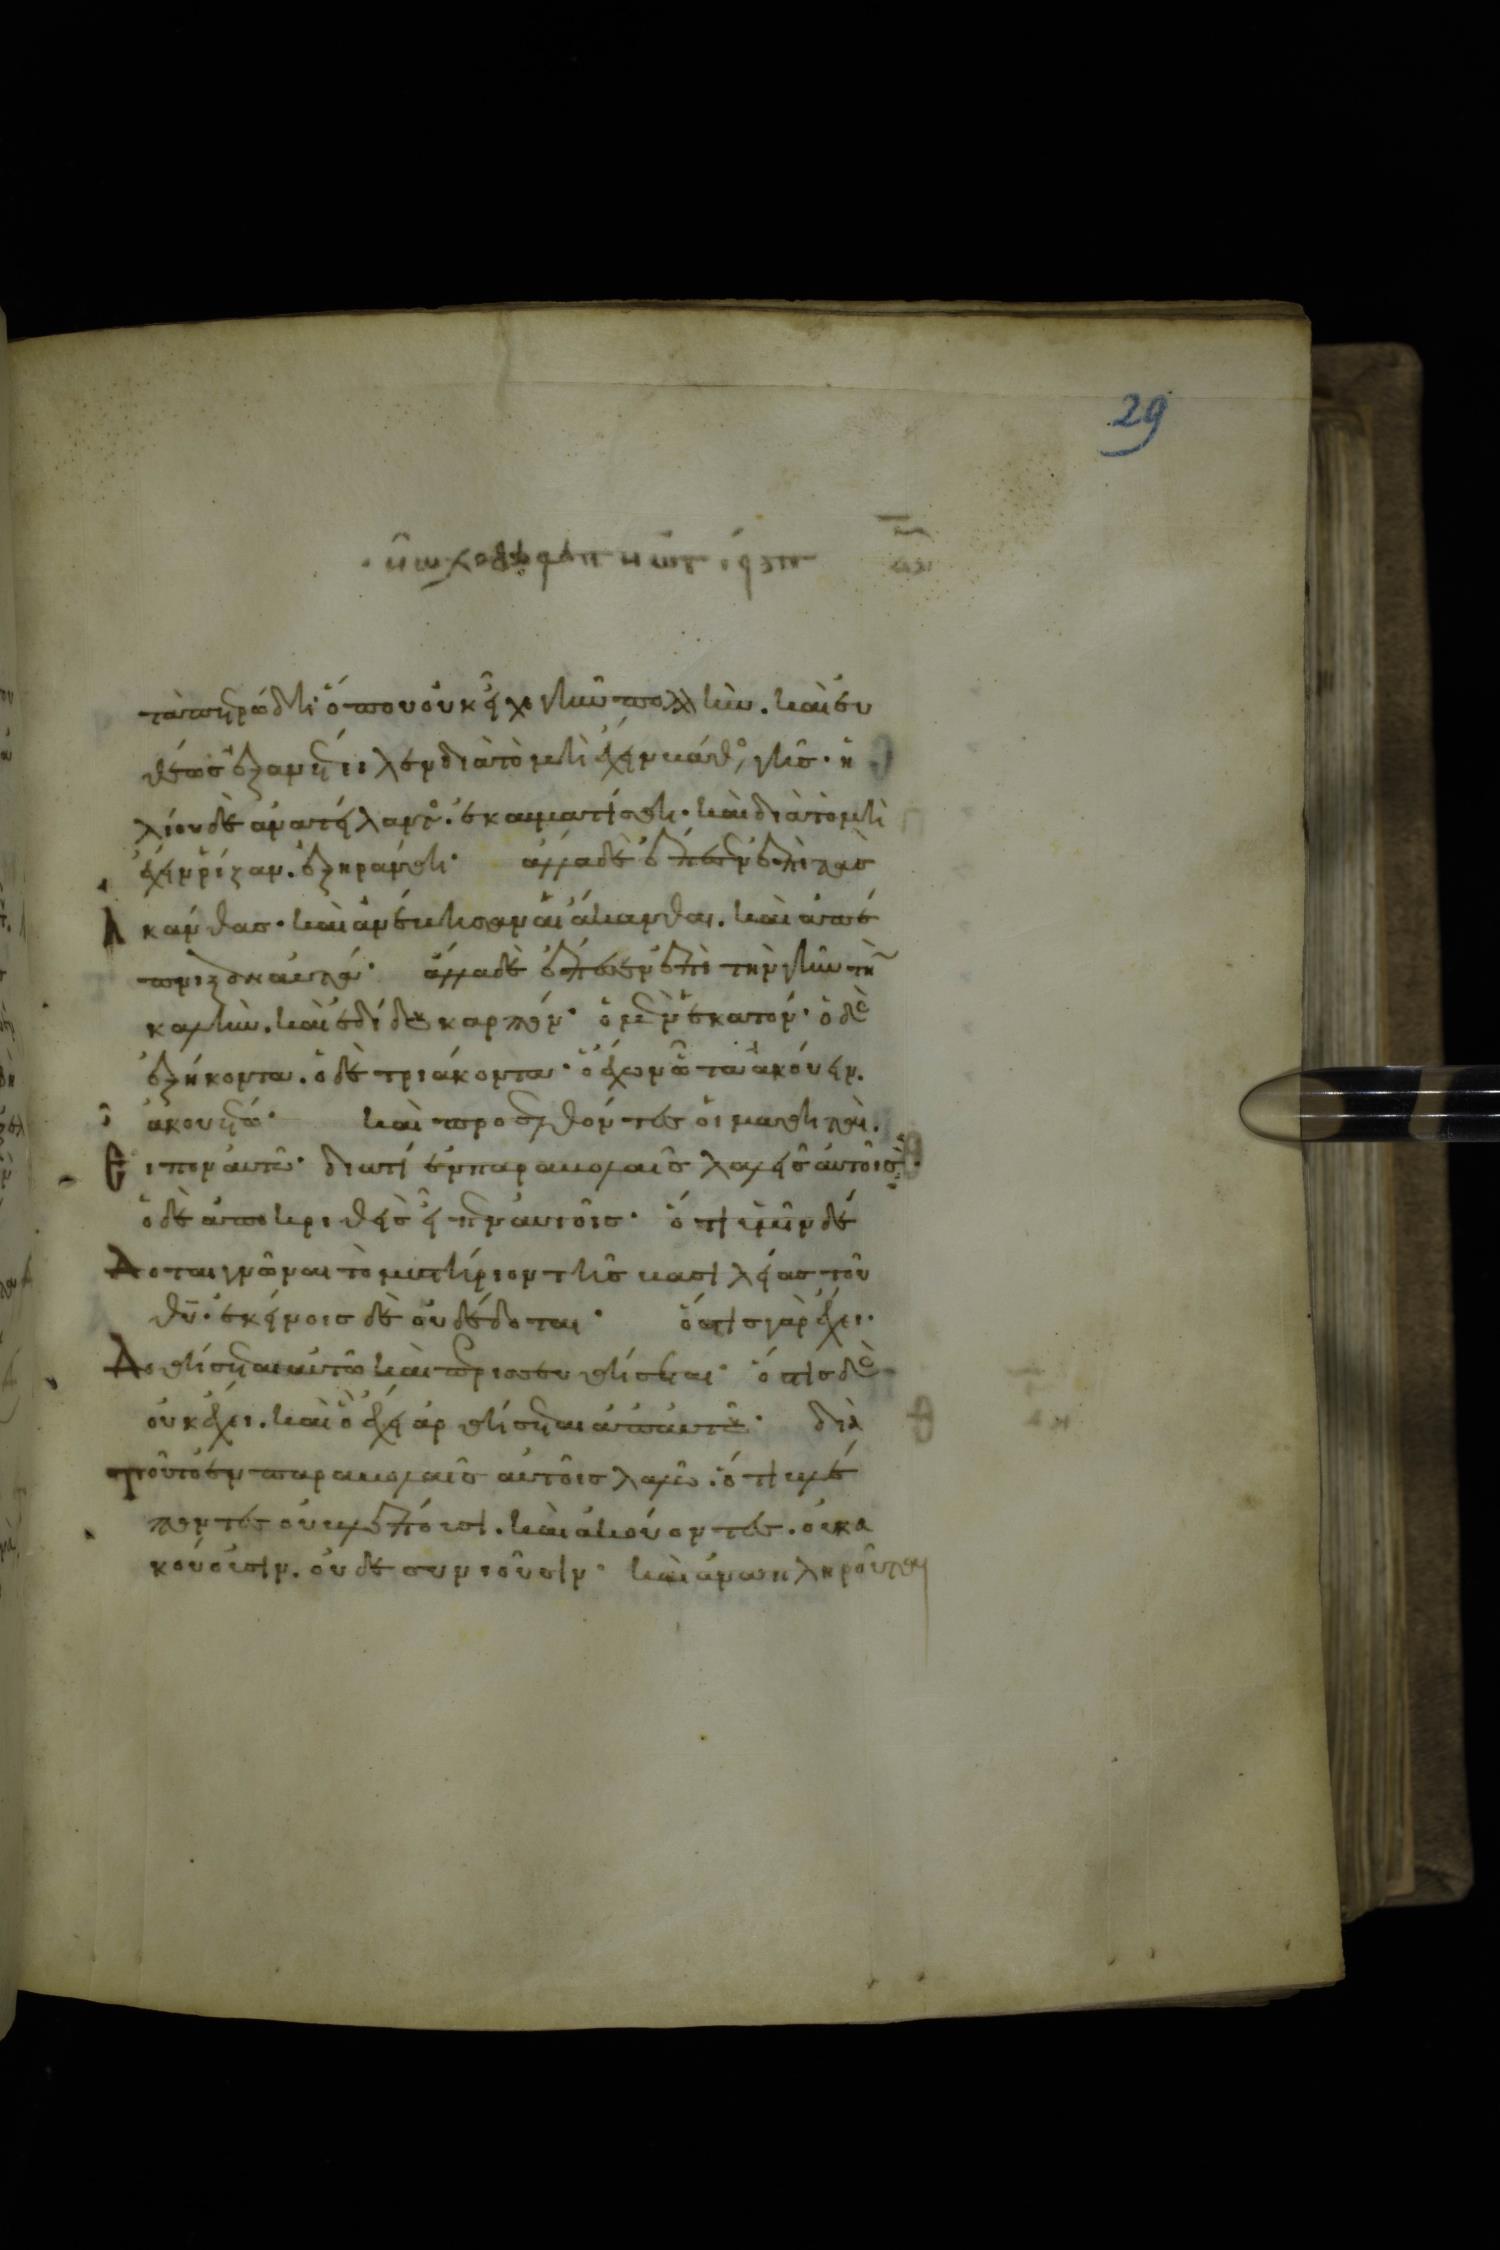 29
τὰ πετρώδη· ὅπου οὐκ εἶχε γῆν πολλὴν. καὶ ευ
θέως ἐξανέτειλεν διὰ τὸ μὴ ἔχειν βάθος γῆς· ἡ
λίου δὲ ἀνατείλαντος. ἐκαυματίσθη· καὶ διὰ τὸ μὴ
ἔχειν ῥίζαν. ἐξηράνθη· ἄλλα δὲ ἔπεσεν ἐπὶ τὰς
ἀκάνθας· καὶ ἀνέβησαν αἱ ἄκανθαι. καὶ ἀπέ
πνιξον αυτά· ἄλλα δὲ ἔπεσεν ἐπὶ τὴν γῆν τὴν
καλὴν. καὶ ἐδίδου καρπόν· ὁ μὲν ἑκατόν· ὁ δὲ
ἑξήκοντα. ὁ δὲ τριάκοντα· ὁ ἔχων ὦτα ἀκούειν.
ἀκουέτω· καὶ προσελθόντες οἱ μαθηταὶ.
Ειπον αὐτῶ· διατί ἐν παραβολαῖς λαλεῖς αὐτοῖς·
ὁ δὲ ἀποκριθεὶς εἶπεν αὐτοῖς· ὅτι ὑμῖν δέ
Δοται γνῶναι τὸ μυστήριον τῆς βασιλείας τοῦ
θῡ· ἐκείνοις δὲ οὐ δέδοται· ὅστις γὰρ ἔχει.
Δοθήσεται αὐτῶ καὶ περισσευθήσεται· ὅστις δὲ
οὐκ ἔχει. καὶ ὃ ἔχει ἀρθήσεται ἀπ αὐτοῦ· διὰ
Τοῦτο ἐν παραβολαῖς αὐτοῖς λαλῶ. ὅτι βλέ
ποντες οὐ βλέπουσι. καὶ ἀκούοντες. οὐκ α
κούουσιν. οὐδὲ συνιοῦσιν· καὶ ἀναπληροῦται